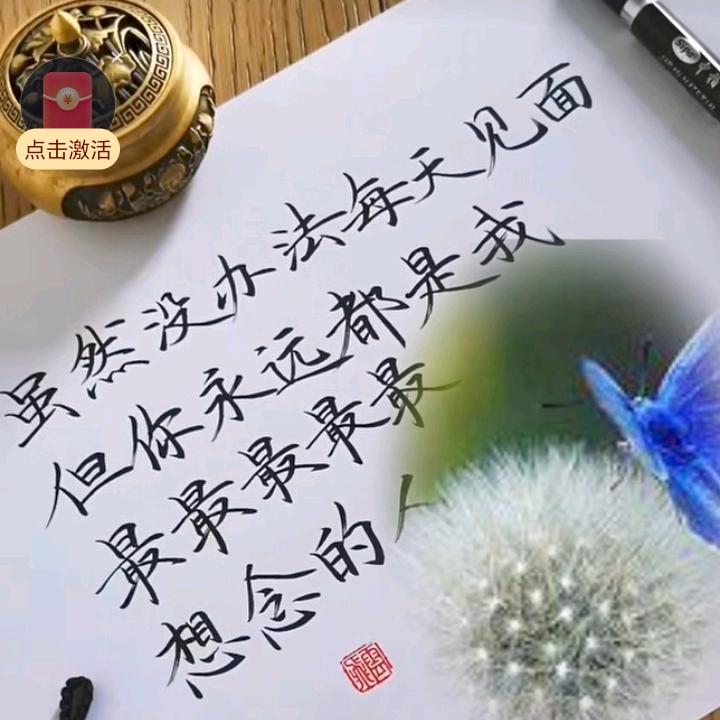 点击激活
虽然没办法每天见面
但你永远都是我
最最最最最
想念的人